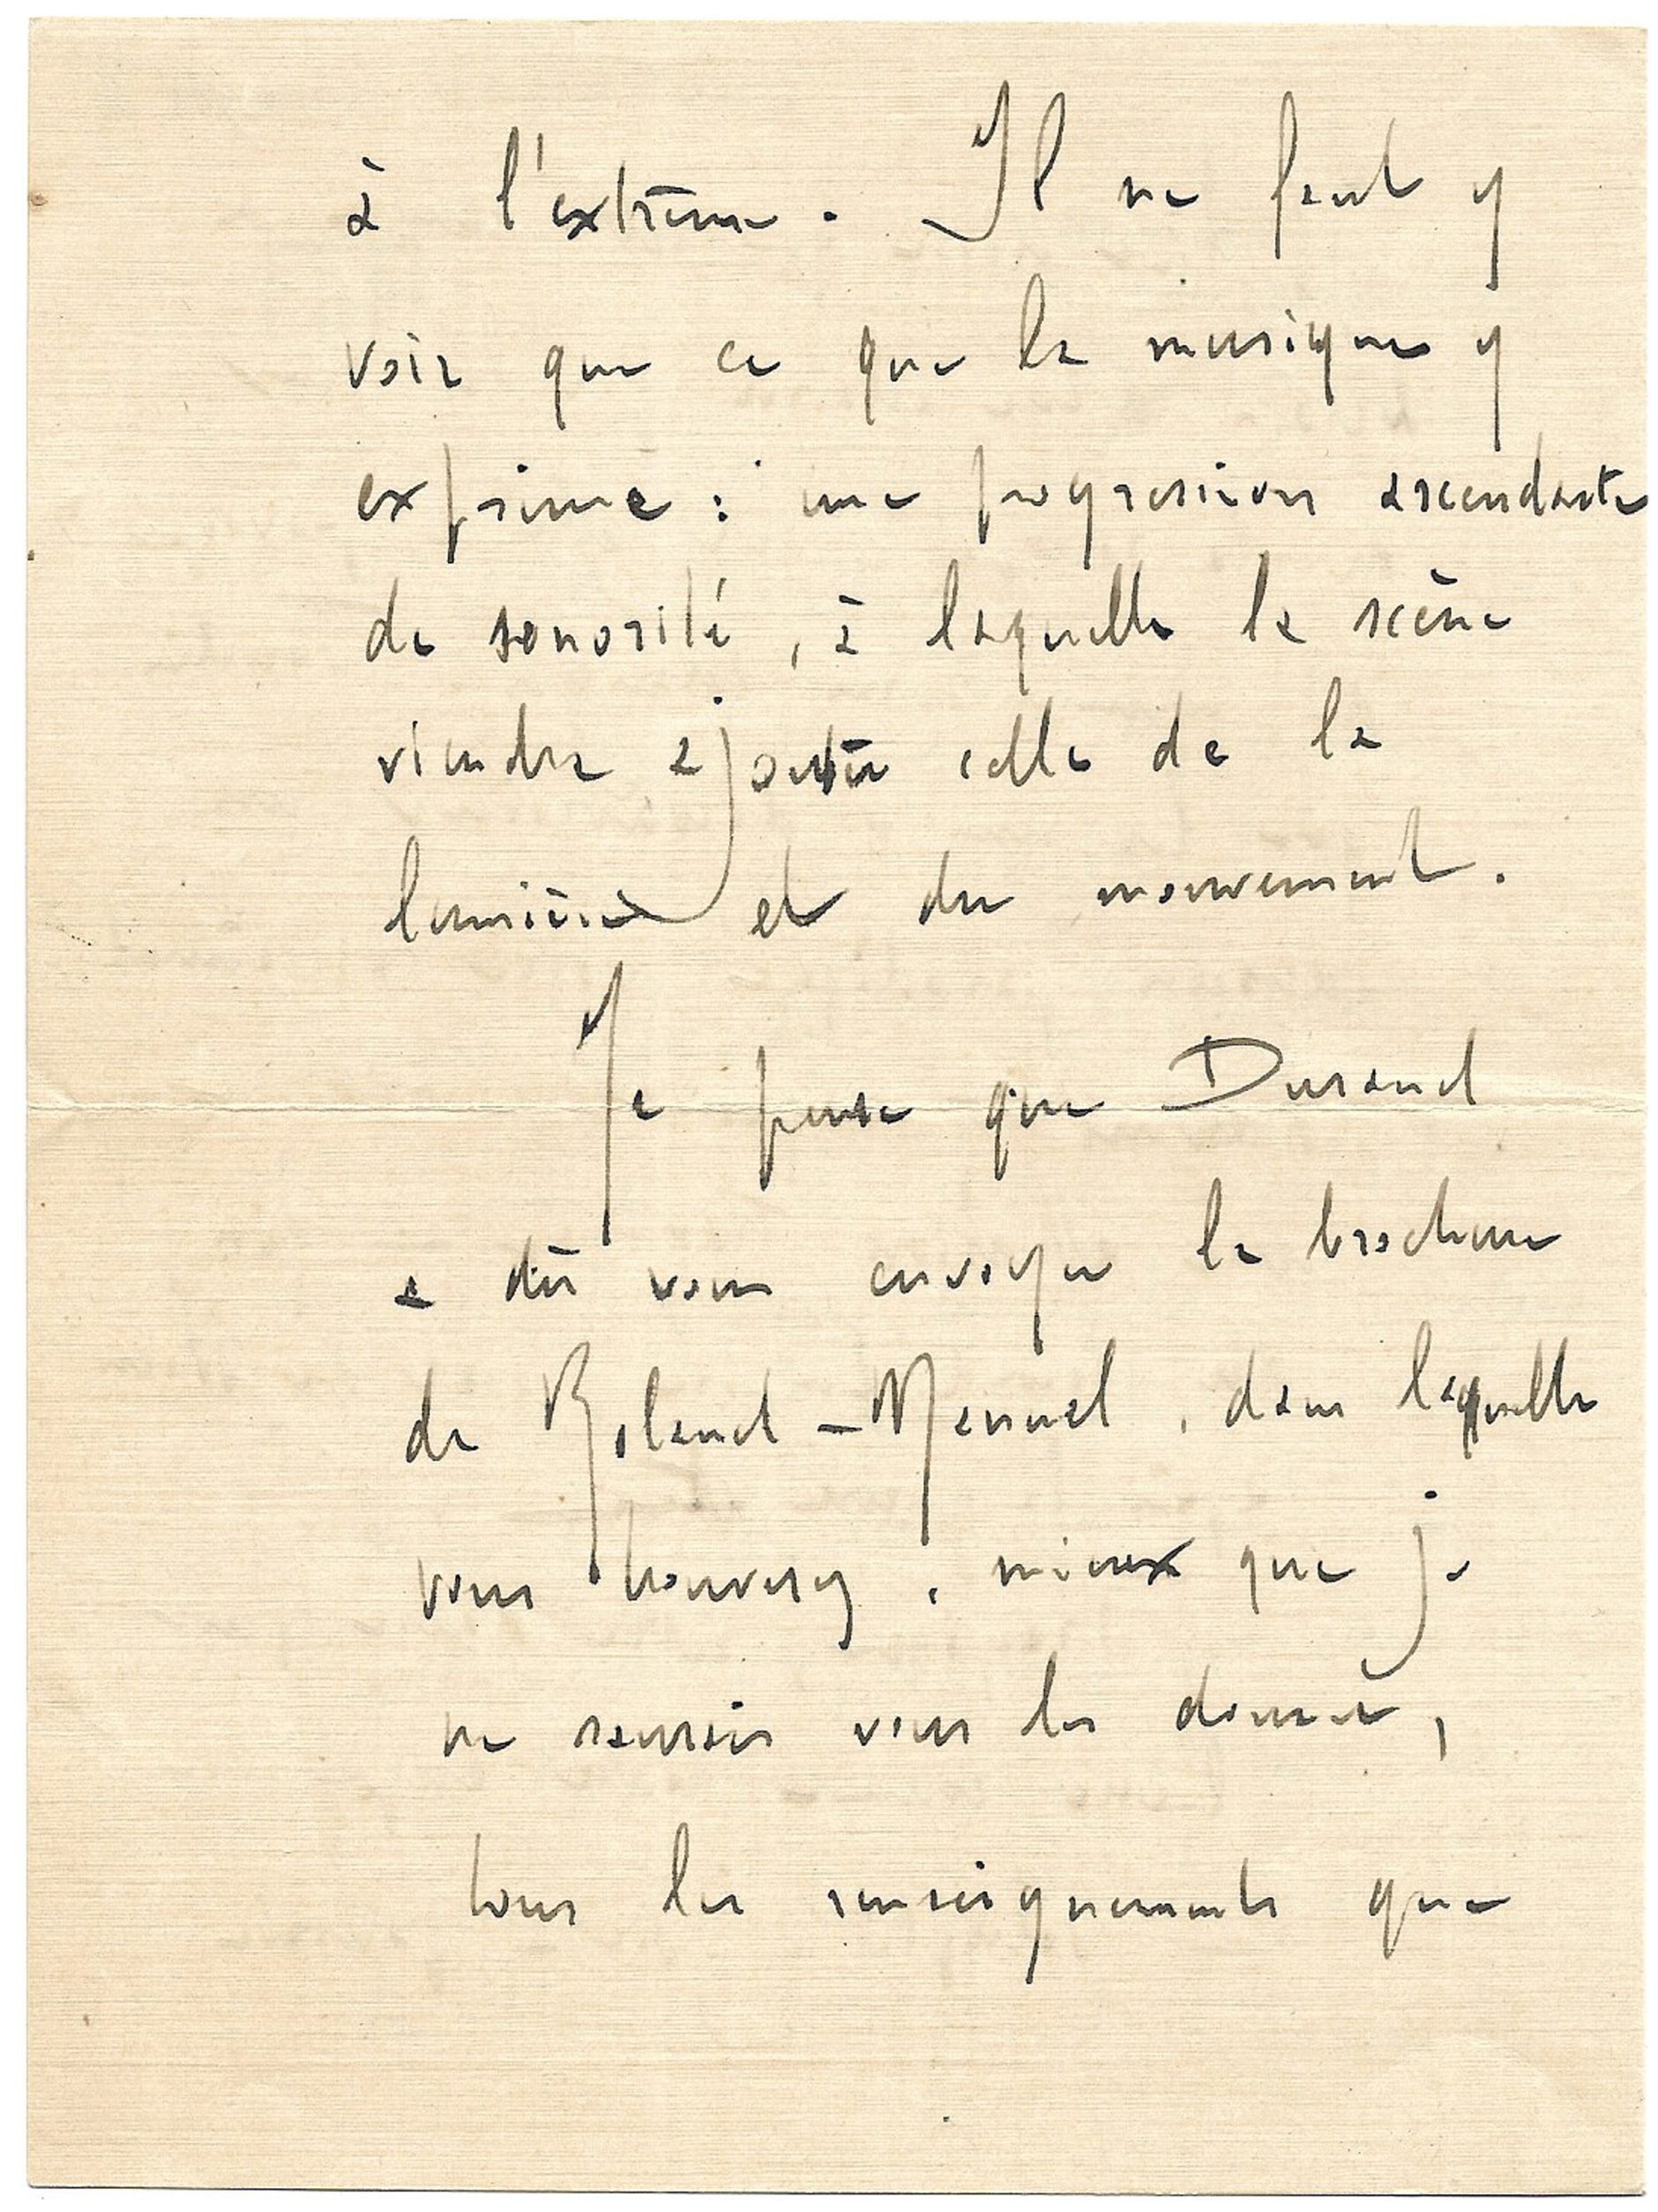 à l'extrême. Il ne faut y
voir que ce que la musique y
exprime : une progression ascendante
de sonorité, à laquelle la scène
viendra ajouter celle de la
lumière et du mouvement.
Je pense que Durand
a dû vous envoyer la brochure
de Roland-Manuel, dans laquelle
vous trouverez, mieux que je
ne saurais vous les donner,
tous les renseignements que